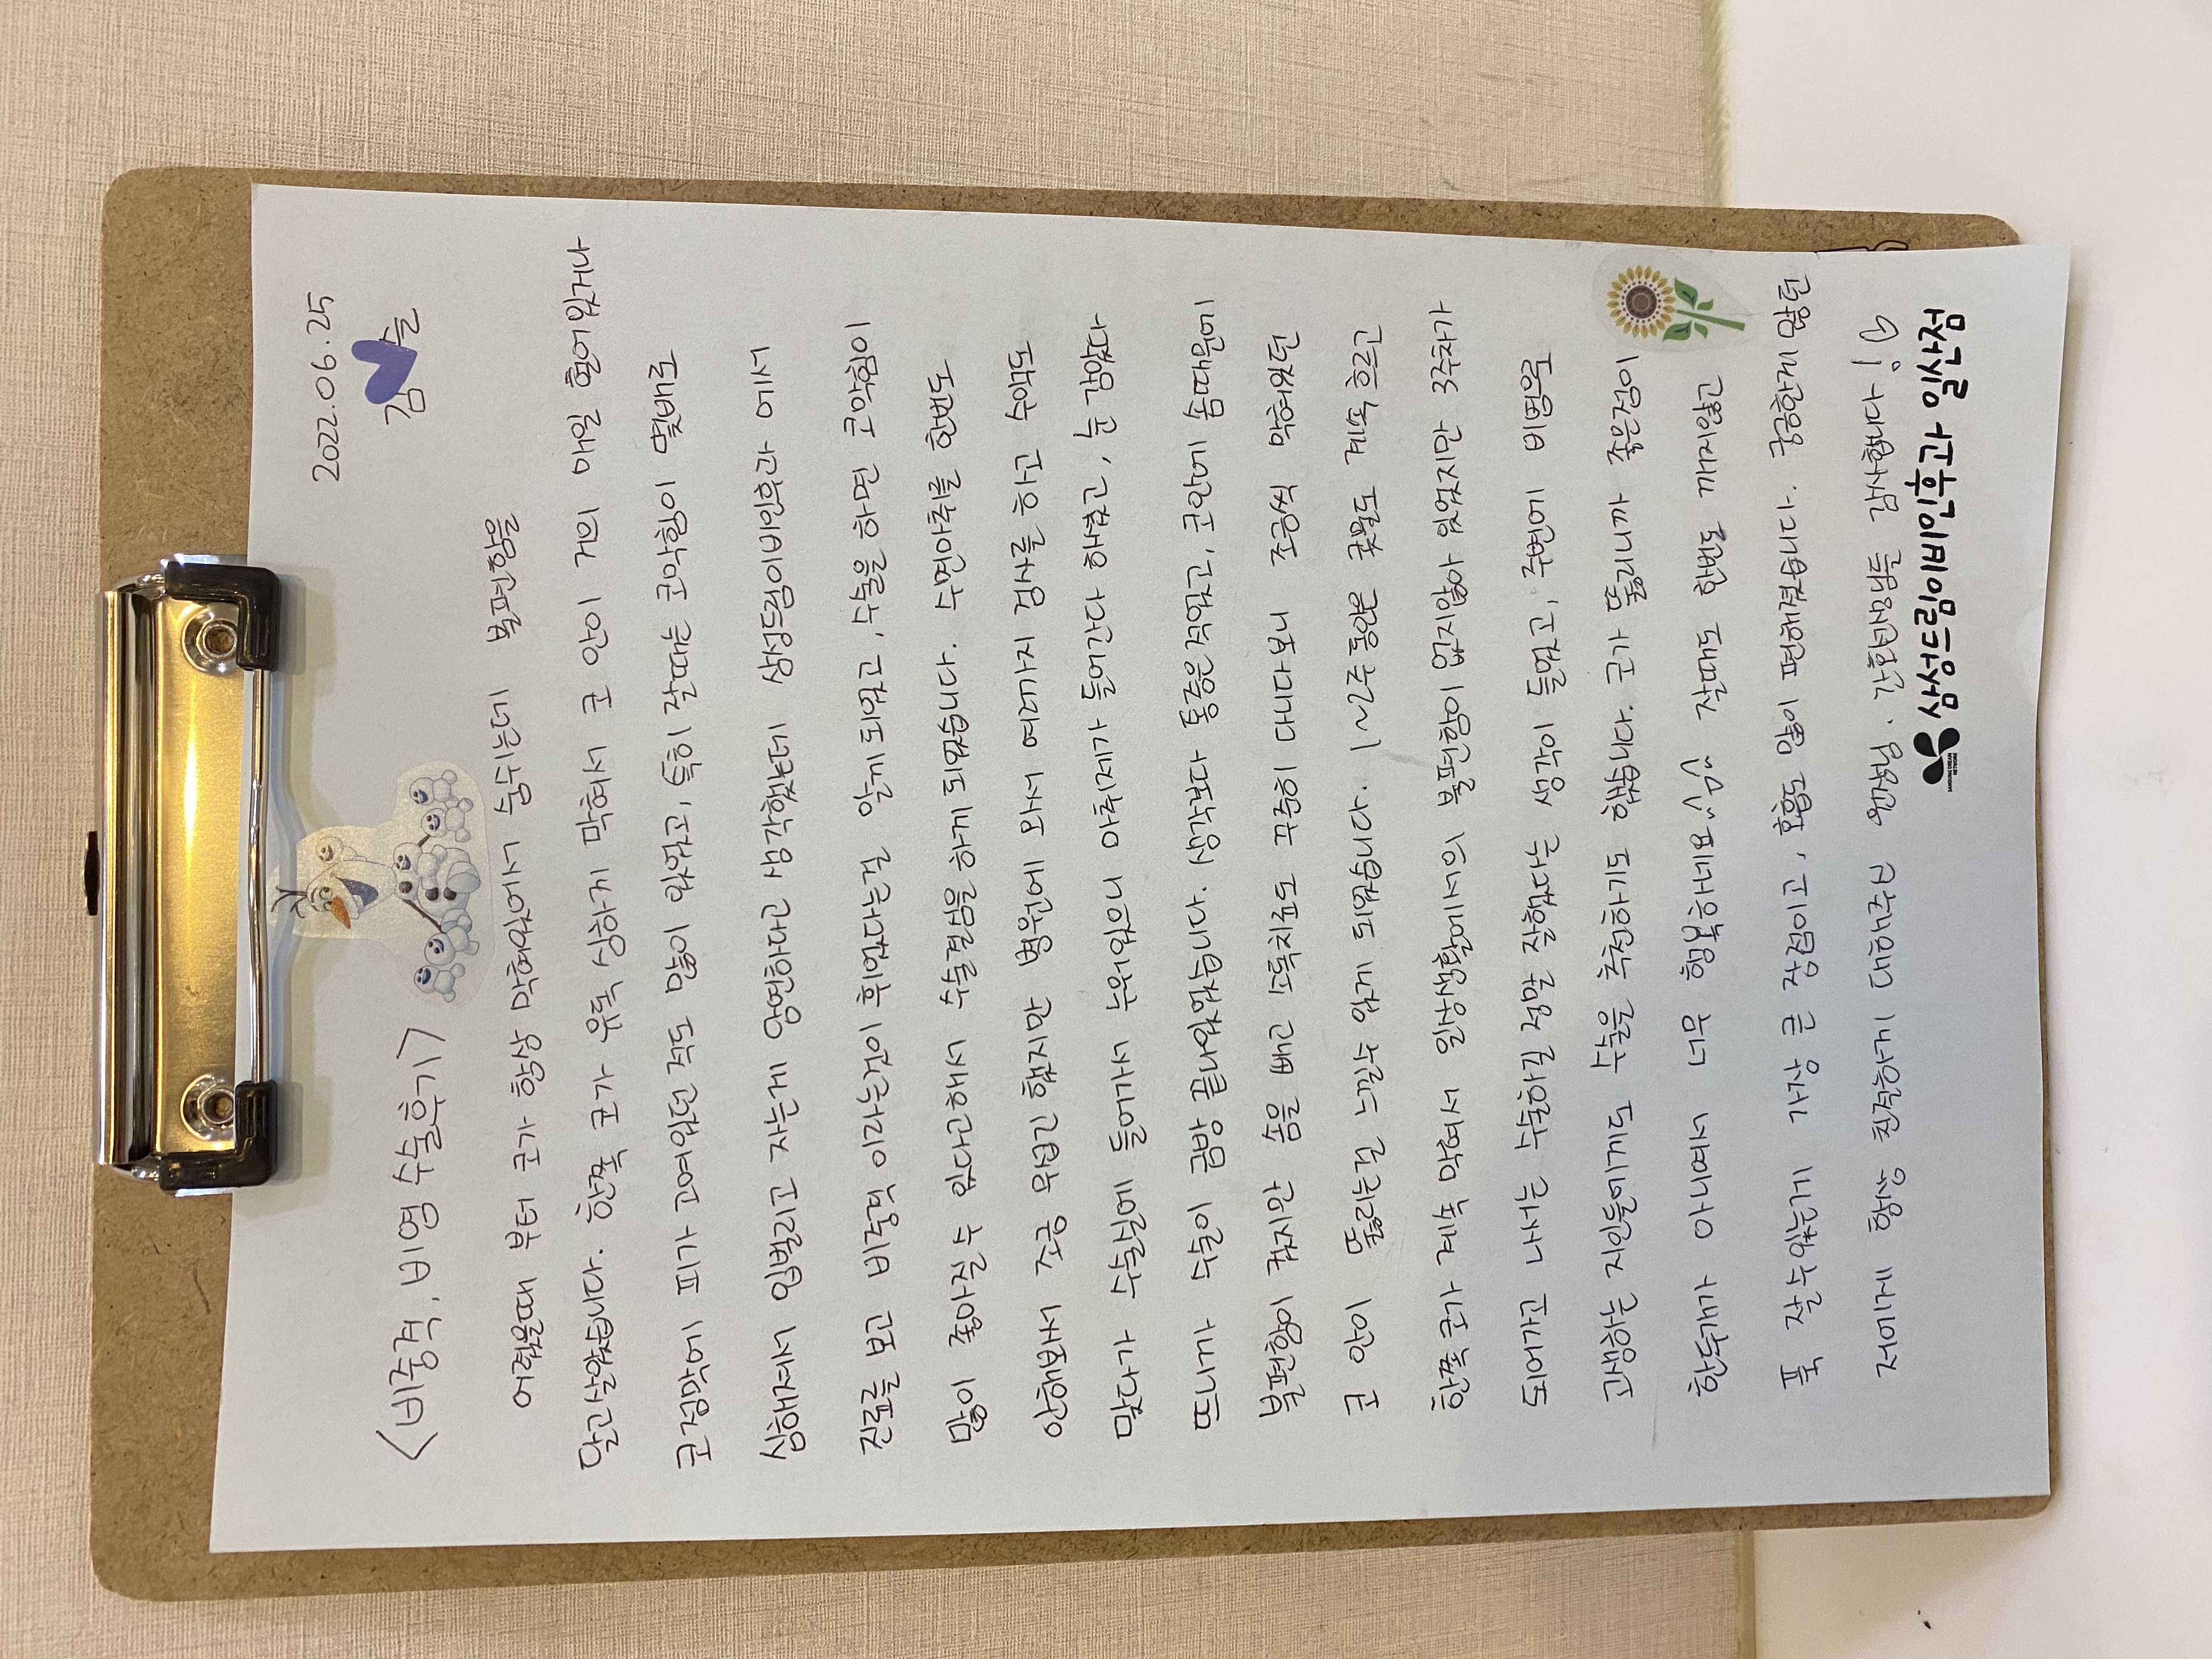 2022.06.25
<비중격, 비염 수술후기>
김 슬
어렸을때 부터 코가 항상 막혀있어서 숨쉬는데 불편함을
달고살았습니다. 한쪽 코가 유독 심하게 막혀서 코 안이 거의 매일 헐어있거나
코점막에 피가 고여있던 적도 많이 있었고, 특히 잘때는 코막힘이 몇배로
심해져서 입벌리고 자는게 당연하다고 생각했었는데 삼성드림이비인후과 에서
진료를 보고 비중격이라는것이 휘었다는걸 알게되었고, 수술을 하면 코막힘이
많이 좋아질 수 있다고해서 수술결심을하게 되었습니다. 수면마취를 한번도
안해봐서 조금 무섭긴 했지만 병원에 와서 여러가지 검사를 하고 수액도
맞다가 수술실에 들어가서 누워있으니 마취제가 들어간다 하셨고, 눈 감았다
뜨니까 수술이 금방 끝나있었습니다. 생각보다 통증은적었고, 코안에 솜때문에
불편함이 컸지만 솜을 빼고 소독치료도 꾸준히 다니다보니 조금씩 막혀있던
코 안이 뚫리는걸 느낄수 있게 되었습니다. 1~2주 동안은 코도 못풀고 계속 흐르고
한쪽코가 계속 막혀서 일상생활에서의 불편함이 없지않아 있었지만 3주차가
되어가고 나서는 수술하길 정말 잘했다는 생각이 들었고, 주변에 비염으로
고생하는 지인들이게도 수술을 추천하기도 하였습니다. 코가 뚫리니까 좋은점이
한두개가 아니라서 너무 행복하네요 잘때도 한번도 깨지않고
푹 잘수있는게 가장 큰 장점이고, 호흡도 많이 편해졌습니다. 동환쌤 감흥님
저에게 항상 친절하게 대해주신 원장님, 간호선생님들 감사합니다!
삼성드림이비인후과 일산점